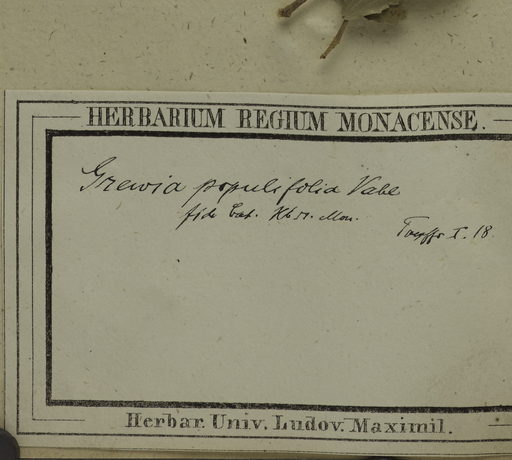 HERBARIUM REGIUM MONACENSE.
Grewia populifolia Vahl
fide Cat. Hb. Mon.
I. 18
Herbar. Univ. Ludov. Maximil.